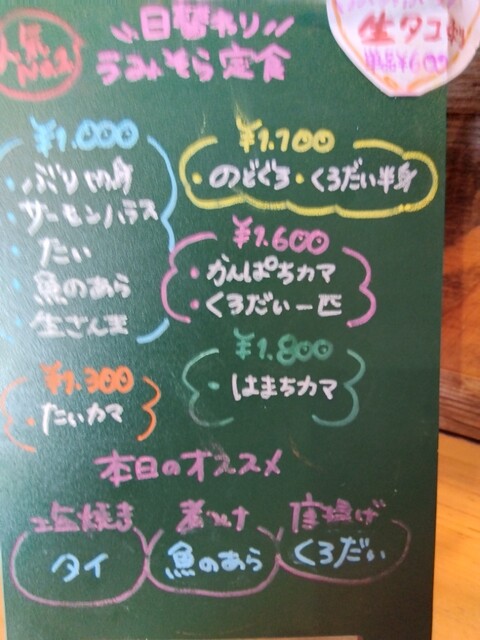 人気
No.1
日替わり
うみそら定食
生タコ
単品¥600
¥1.000
・ぶり切身
・サーモンハラス
・たい
・魚のあら
・生さんま
¥1.700
・のどぐろ・くろだい半身
¥1.600
・かんぱちカマ
・くろだい一匹
¥1.300
・たいカマ
¥1.800
・はまちカマ
本日のオススメ
塩焼き 煮つけ 唐揚げ
タイ 魚のあら くろだい